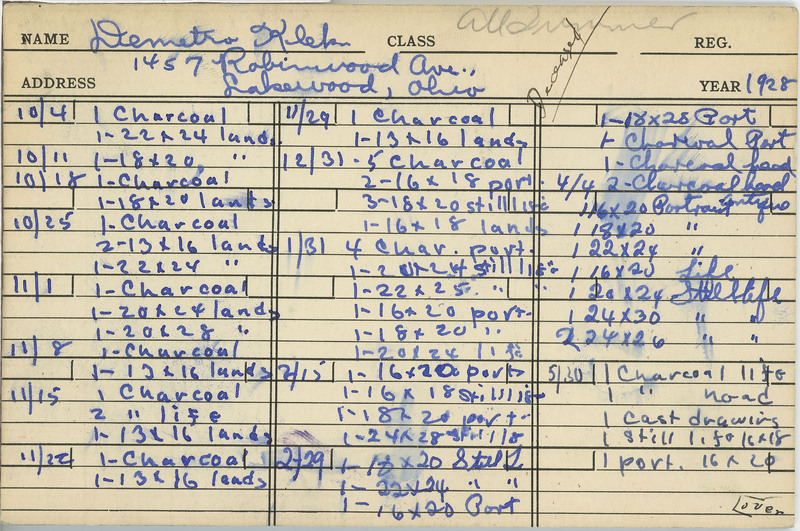 All Summer
NAME Demetro Klek CLASS REG.
Deceased
1457 Robinwood Ave.,
ADDRESS Lakewood, Ohio YEAR 1928
10/4 1 Charcoal
1-22x24 lands
10/11 1-18x20 "
10/18 1-Charcoal
1-18x20 lands
10/25 1-Charcoal
2-13x16 lands
1-22x24 "
11/1 1-Charcoal
1-20x24 lands
1-20x28 "
11/8 1-Charcoal
1-13x16 lands
11/15 1 Charcoal
2 " life
1-13x16 lands
11/22 1-Charcoal
1-13x16 lands
11/29 1 Charcoal
1-13x16 lands
12/31-5 Charcoal
2-16x18 port.
3-18x20 still life
1-16x18 lands
1/31 4 Char. port.
1-20x24 still life
1-22x25 " "
1-16x20 port.
1-18x20 "
1-20x24 life
2/15 1-16x20 port
1-16x18 still life
1-18x20 port.
1-24x28 still life
2/29 1-18x20 Still L
1-22x24 " "
1-16x20 Port
1-18x28 Port
1-Charcoal Port
1-Charcoal head
4/4 2-Charcoal head
1 16x20 Portrait
1 18x20 "
1 22x24 "
1 16x20 Life
1 20x24 Still Life
1 24x30 " "
2 24x26 " "
5/30 1 Charcoal life
1 " head
1 cast drawing
1 still life 16x18
1 port. 16x20
Over